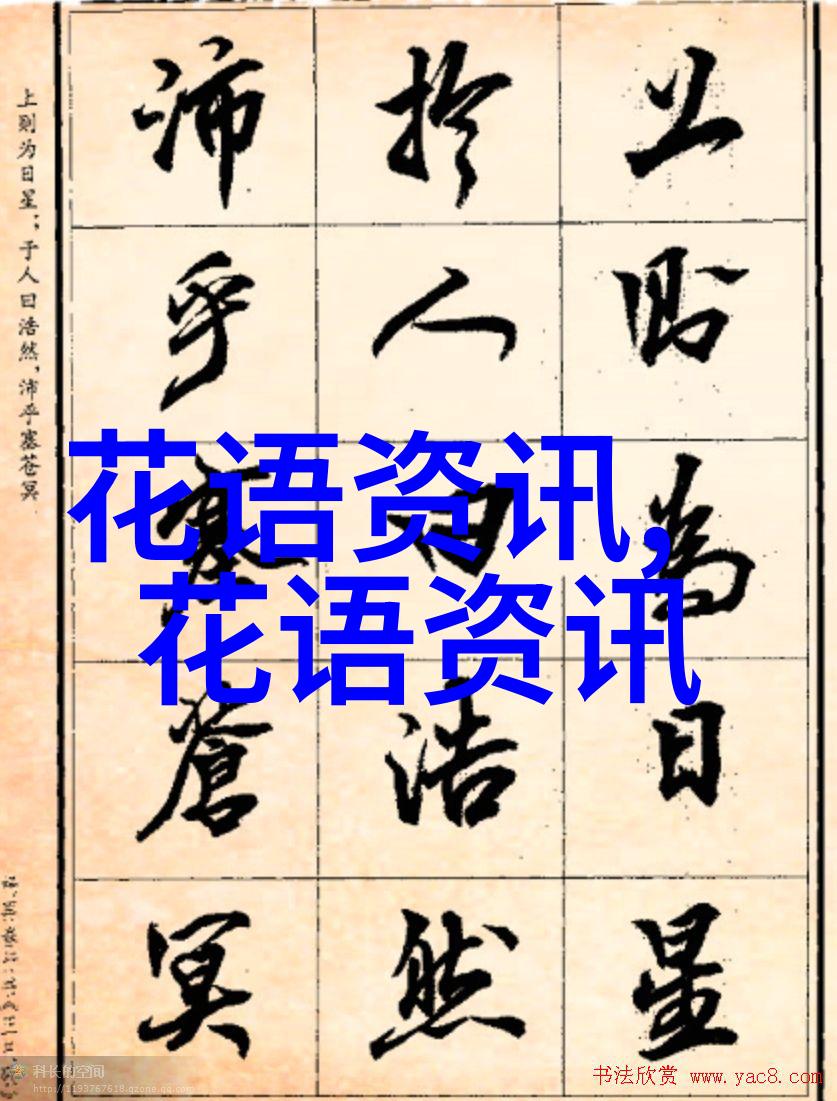 上则为日星；于人曰浩然，沛乎塞苍冥
上则為日星
於人曰浩然
沛乎塞蒼冥
花语资讯，
花语资讯
科长的空间
http://1193767618.qzone.qq.com
书法欣赏 www.yac8.com